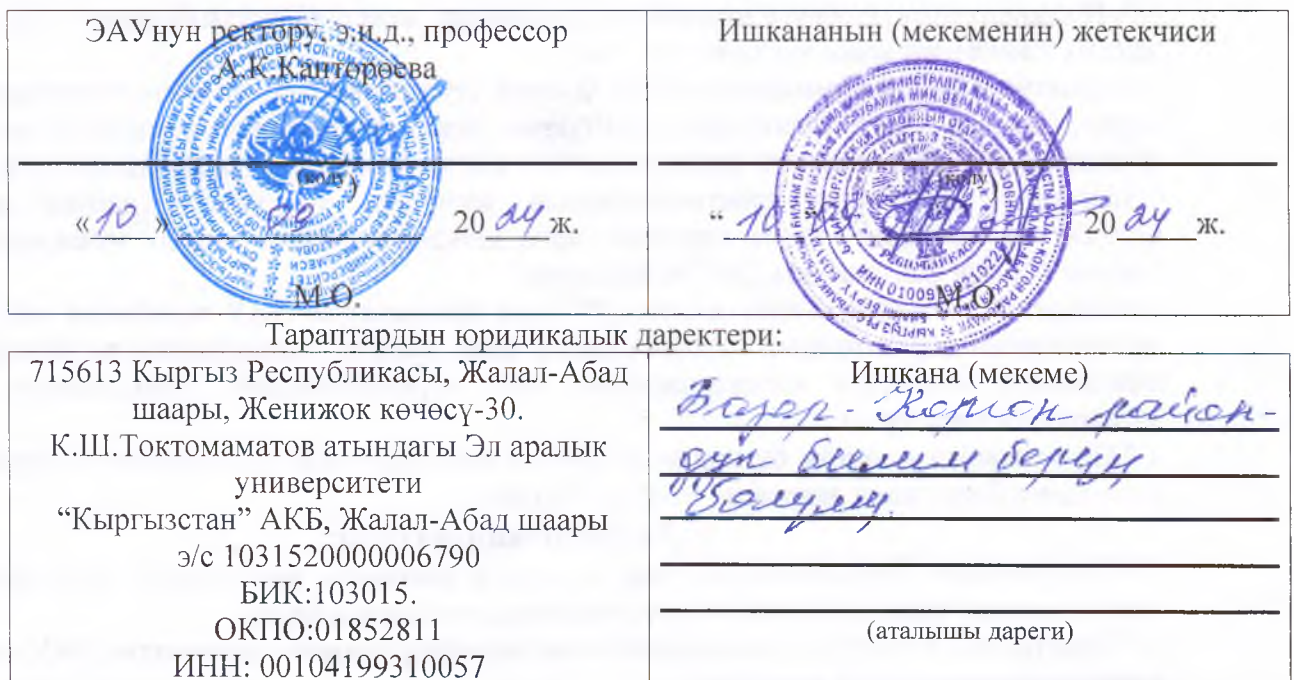 ЭАУнун ректору, э.и.д., профессор
А.К.Кантороева
(колу)
«10 » 20 24 ж.
М.О.
Ишкананын (мекеменин) жетекчиси
(колу)
“ 10 ” 20 24 ж.
М.О.
Тараптардын юридикалык даректери:
715613 Кыргыз Республикасы, Жалал-Абад
шаары, Женижок көчөсү-30.
К.Ш.Токтомаматов атындагы Эл аралык
университети
“Кыргызстан” АКБ, Жалал-Абад шаары
э/с 1031520000006790
БИК:103015.
ОКПО:01852811
ИНН: 00104199310057
Ишкана (мекеме)
Базар-Коргон район-
дук билим берүү
бөлүмү.
(аталышы дареги)